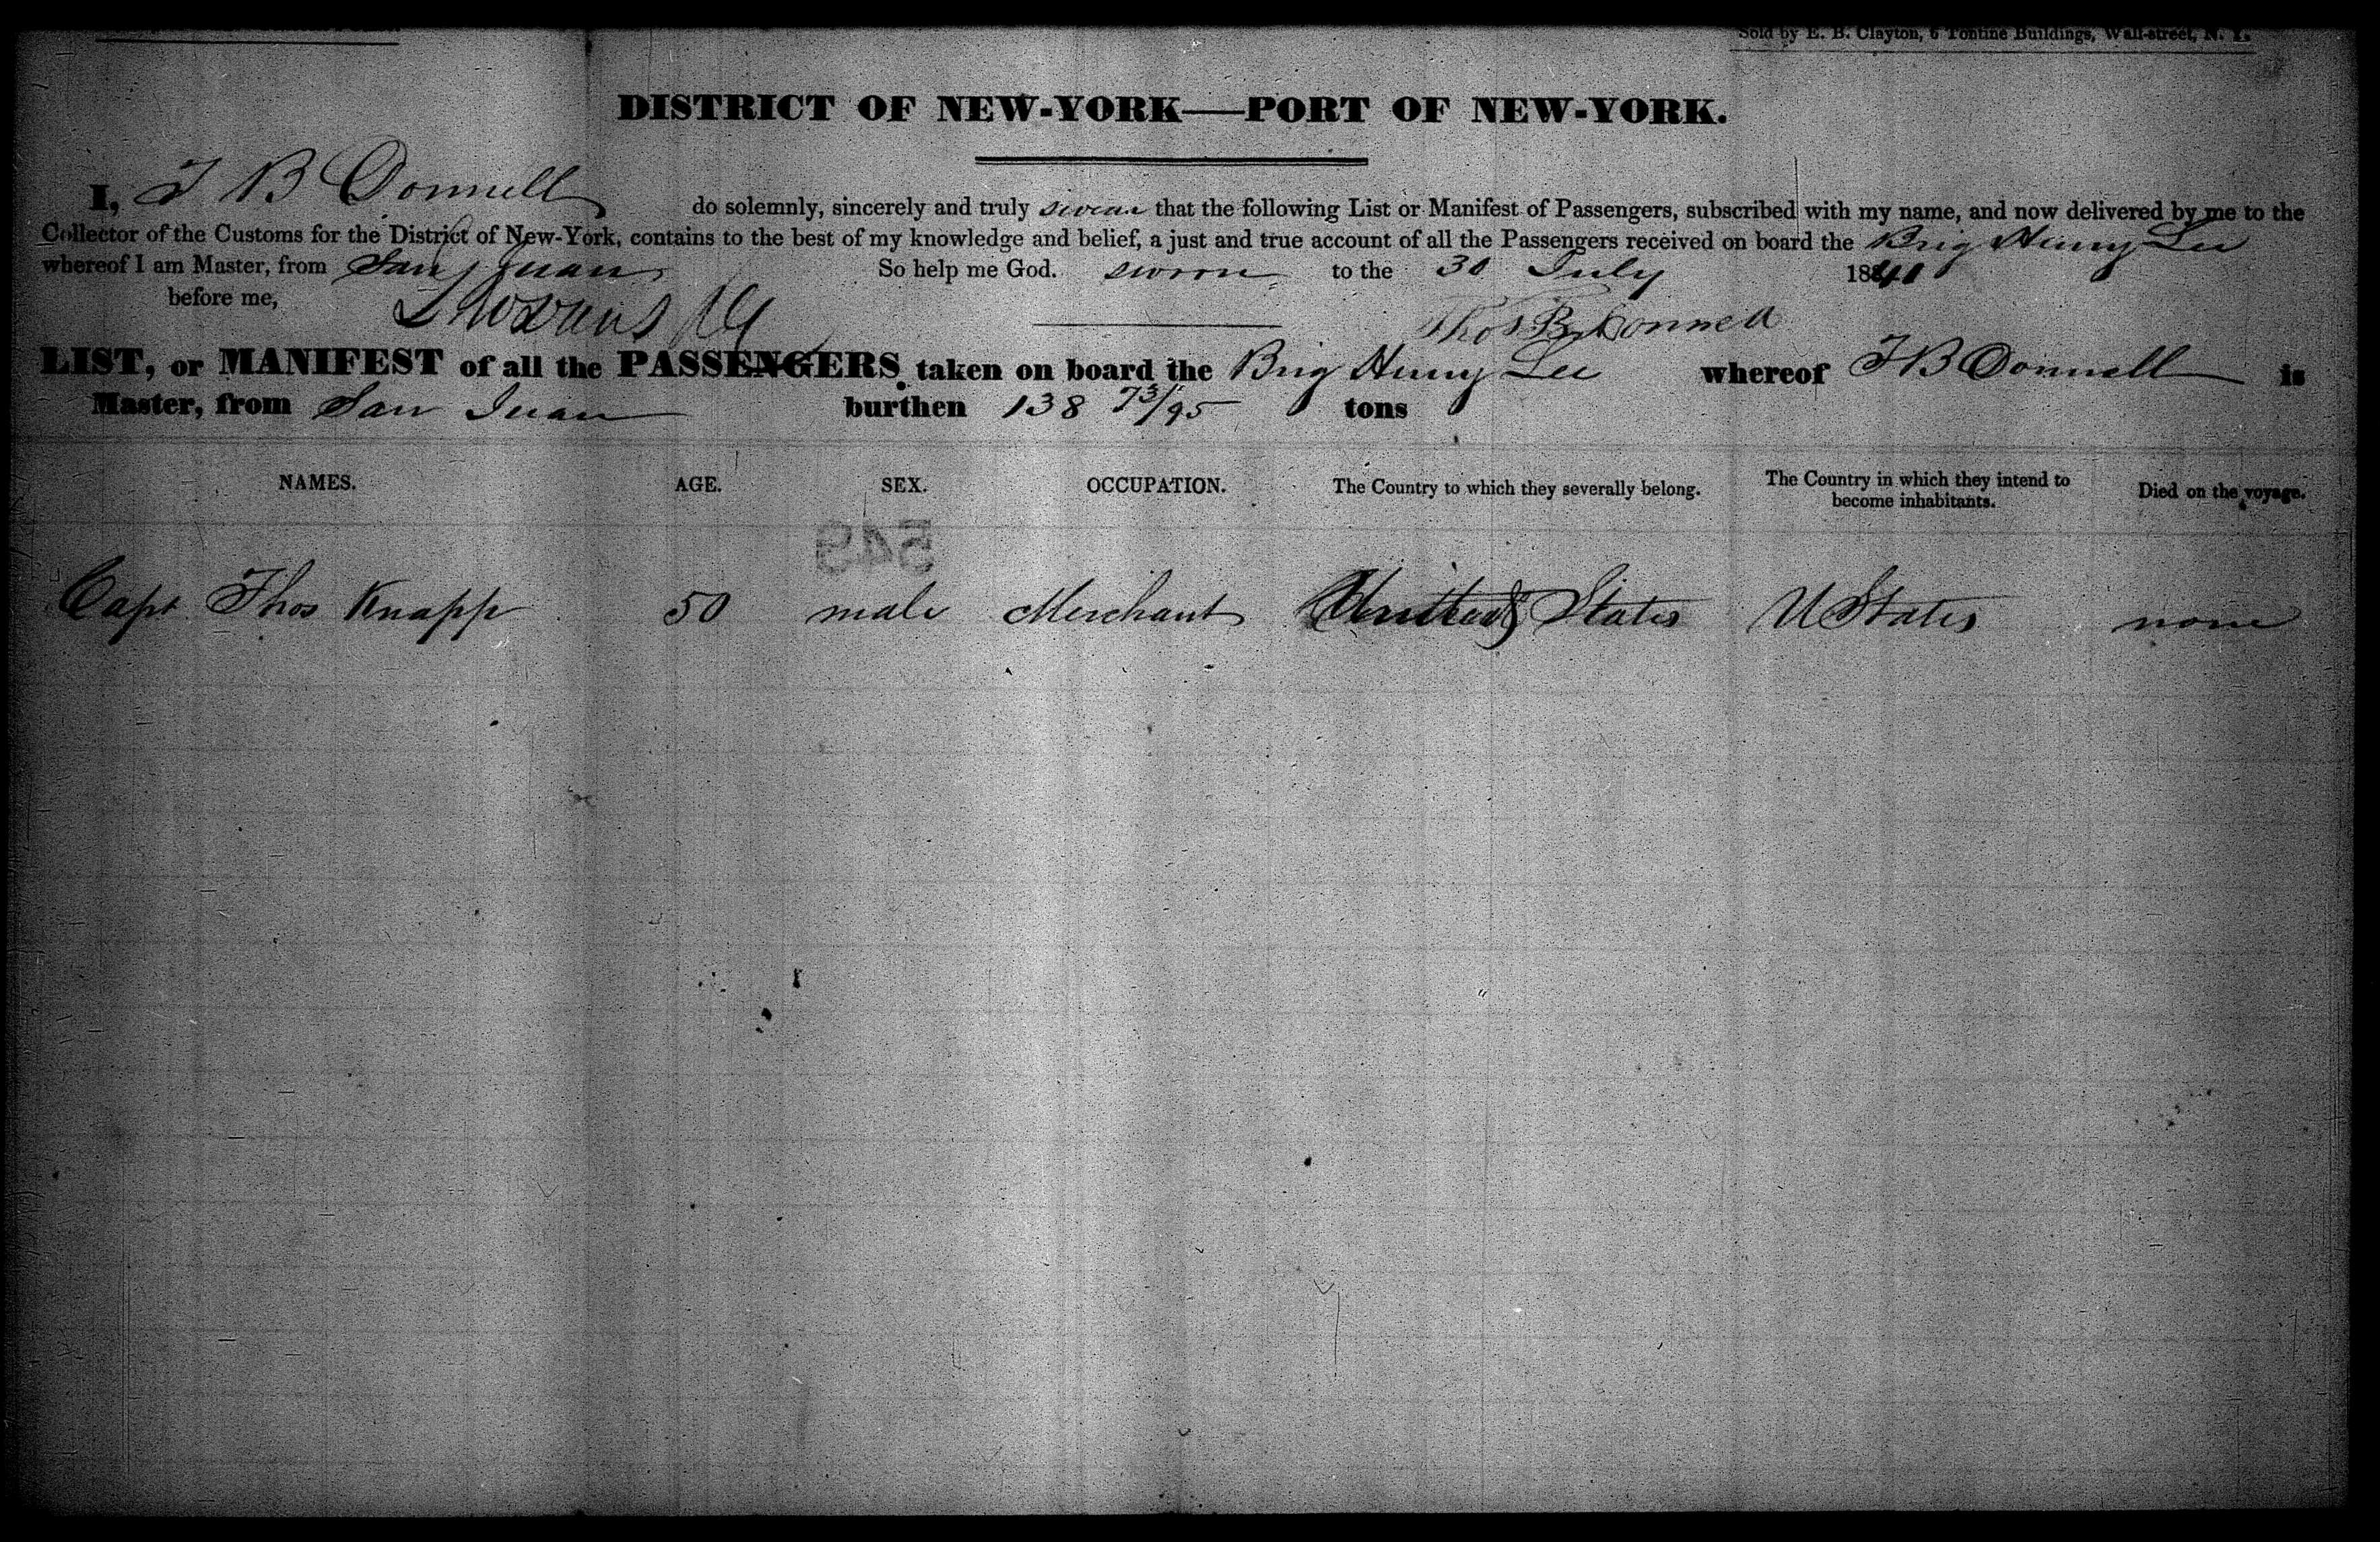 Sold by E. B. Clayton, 6 Tontine Buildings, Wall-street, N. Y.
DISTRICT OF NEW-YORK—PORT OF NEW-YORK.
I, T B Donnell do solemnly, sincerely and truly swear that the following List or Manifest of Passengers, subscribed with my name, and now delivered by me to the
Collector of the Customs for the District of New-York, contains to the best of my knowledge and belief, a just and true account of all the Passengers received on board the Brig Henry Lee
whereof I am Master, from San Juan So help me God. sworn to the 30 July 1841
before me,
Thos B Donnell
LIST, or MANIFEST of all the PASSENGERS taken on board the Brig Henry Lee whereof T B Donnell is
Master, from San Juan burthen 138 73/95 tons
NAMES. AGE. SEX. OCCUPATION. The Country to which they severally belong. The Country in which they intend to become inhabitants. Died on the voyage.
549
Capt Thos Knapp 50 male Merchant United States U States none